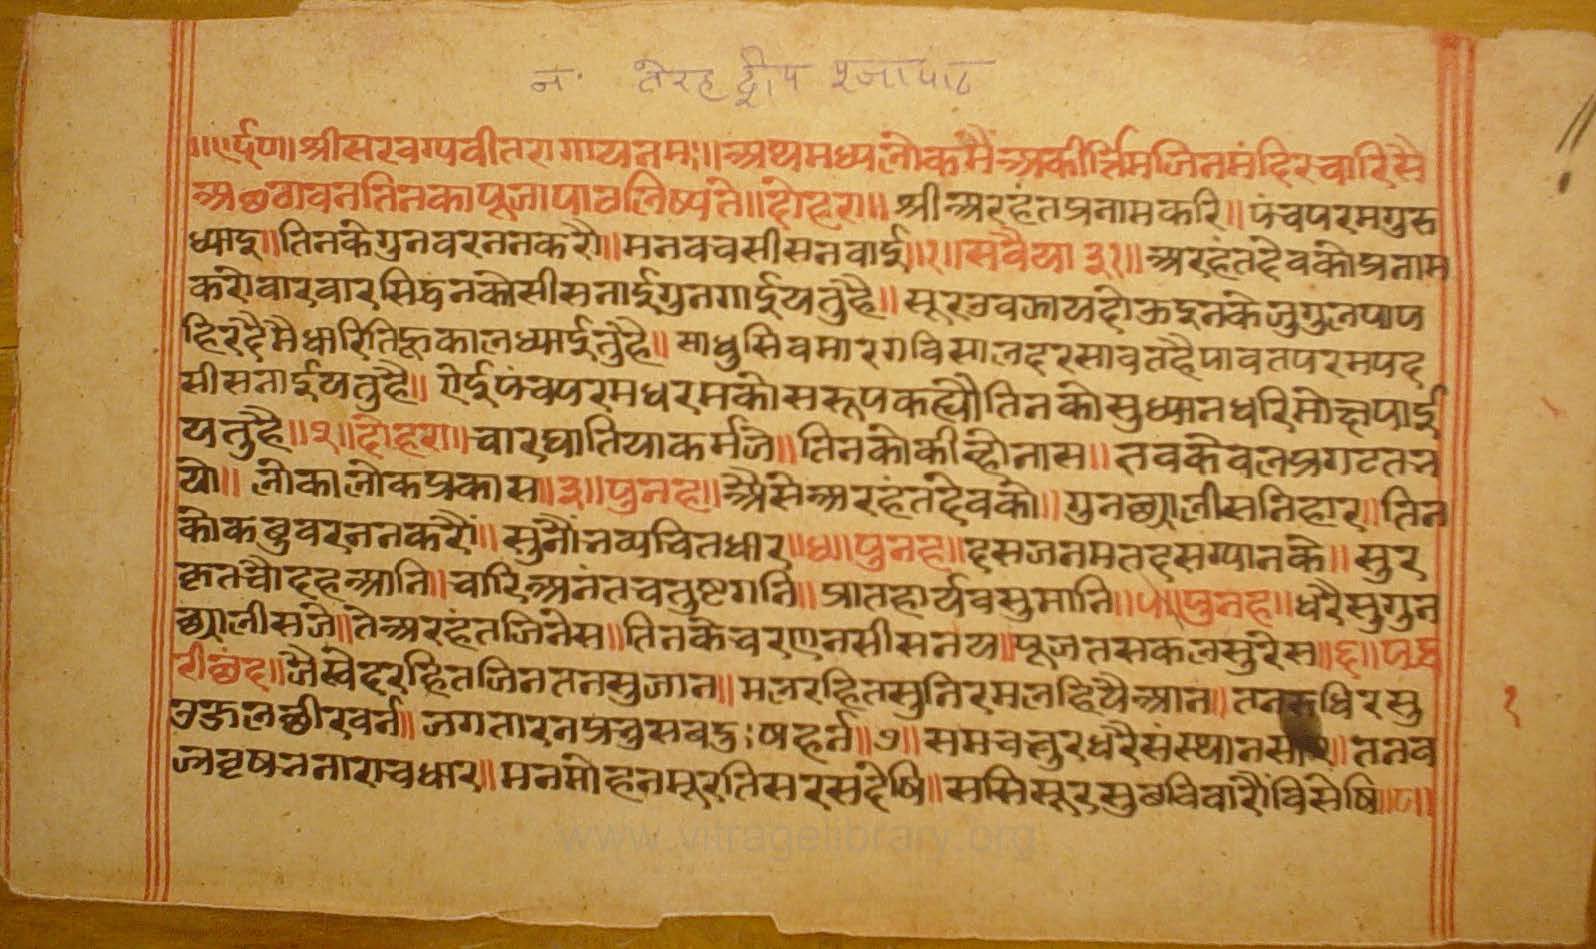 नं॰ तेरह द्वीप पूजा पाठ
॥ॐ॥ श्रीसरवग्यवीतरागायनमः॥ अथमध्यलोकमैंअकीर्त्तिमजिनमंदिरचारिसै
अठ्ठावनतिनकापूजापाठलिष्यंते॥ दोहरा॥ श्रीअरहंतप्रनामकरि॥ पंचपरमगुरु
ध्याइ॥ तिनकेगुनवरननकरौं॥ मनवचसीसनवाई॥१॥ सवैया ३१॥ अरहंतदेवकोप्रनाम
करोवारवारसिद्धनकोसीसनाईगुनगाईयतुहै॥ सूरउवझायदोऊइनकेजुगुलपाय
हिरदैमैधारितिहूकालध्याईतुहै॥ साधुसिवमारगविसालदरसावतहैपावतपरमपद
सीसनाईयतुहै॥ एईपंचपरमधरमकोसरूपकह्यौतिनकोसुध्यानधरिमोक्षपाई
यतुहै॥२॥ दोहरा॥ चारघातियाकर्मजे॥ तिनकोकीन्होनास॥ तवकेवलप्रगटतभ
यो॥ लोकालोकप्रकास॥३॥ पुनह॥ अैसेअरहंतदेवको॥ गुनछ्यालीसनिहार॥ तिन
कोकछुवरननकरौं॥ सुनौंभव्यचितधार॥४॥ पुनह॥ दसजनमतदसग्यानके॥ सुर
कृतचौदहआनि॥ चारिअनंतचतुष्टगनि॥ प्रातहार्यवसुमानि॥५॥ पुनह॥ धरैसुगुन
छ्यालीसजे॥ तेअरहंतजिनेस॥ तिनकेचरणनसीसनय॥ पूजतसकलसुरेस॥६॥ पद्ध
रीछंद॥ जैस्वेदरहितजिनतनसुजान॥ मलरहितसुनिरमलहियैआन॥ तनरुधिरसु
उज्जलछीरवर्न॥ जगतारनप्रभुसवदुःषहर्न॥७॥ समचतुरधरैसंस्थानसार॥ तनव
ज्रवृषभनाराचधार॥ मनमोहनमूरतिसरसदेषि॥ ससिसूरसुछविवारौंविसेषि॥८॥
१
www.vitragelibrary.org